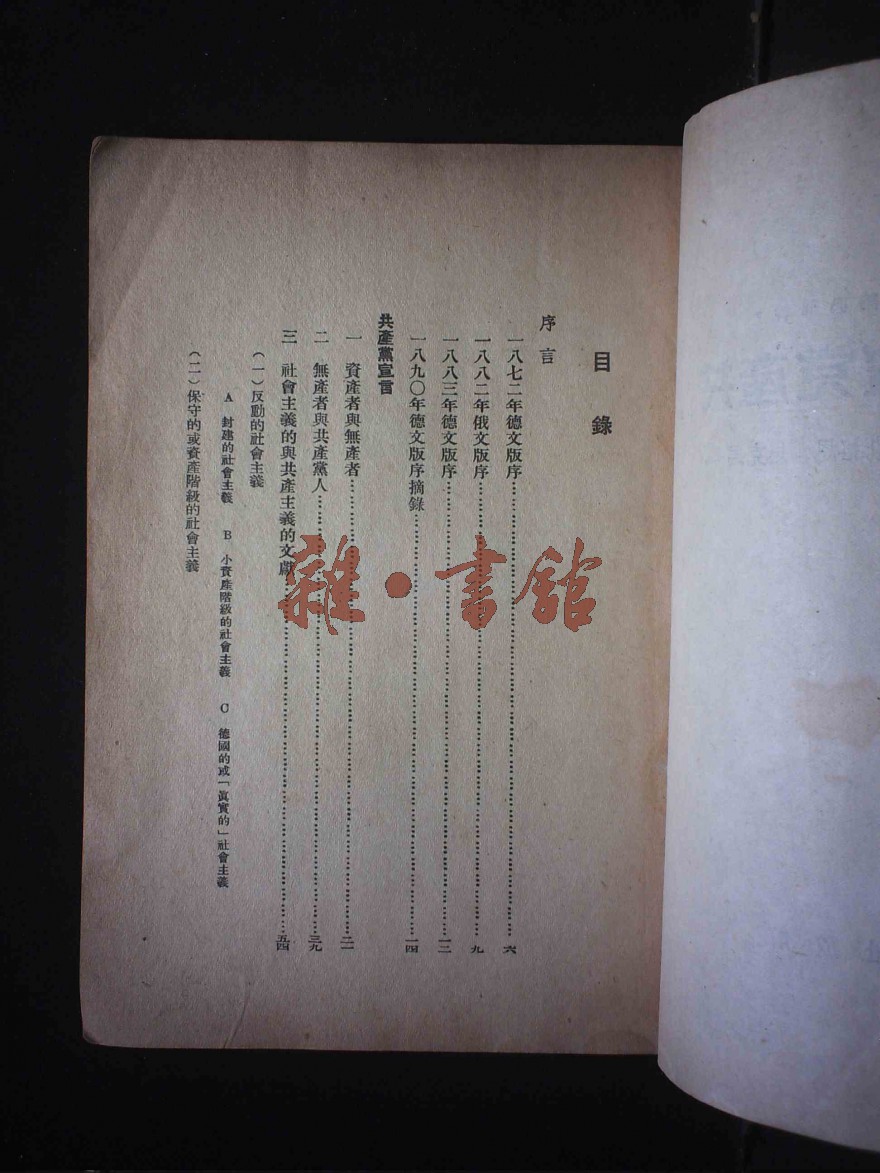 目錄
序言
一八七二年德文版序……六
一八八二年俄文版序……九
一八八三年德文版序……一二
一八九〇年德文版序摘錄……一四
共產黨宣言
一 資產者與無產者……二一
二 無產者與共產黨人……三九
三 社會主義的與共產主義的文獻……五四
（一）反動的社會主義
A 封建的社會主義 B 小資產階級的社會主義 C 德國的或「眞實的」社會主義
（二）保守的或資產階級的社會主義
雜·書館